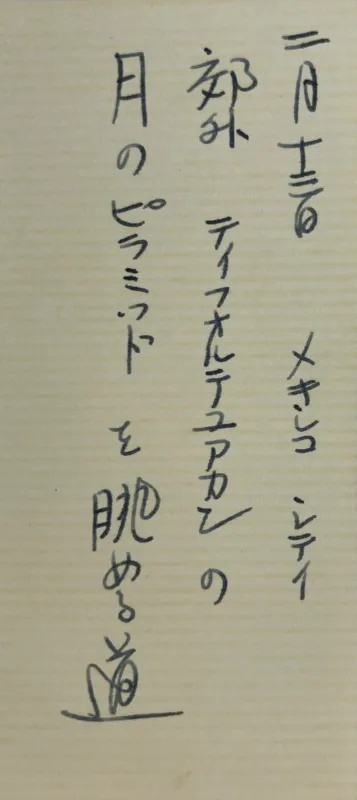 二月十三日 メキシコ シティ
郊外 ティフオルテュアカンの
月のピラミッドを眺める道